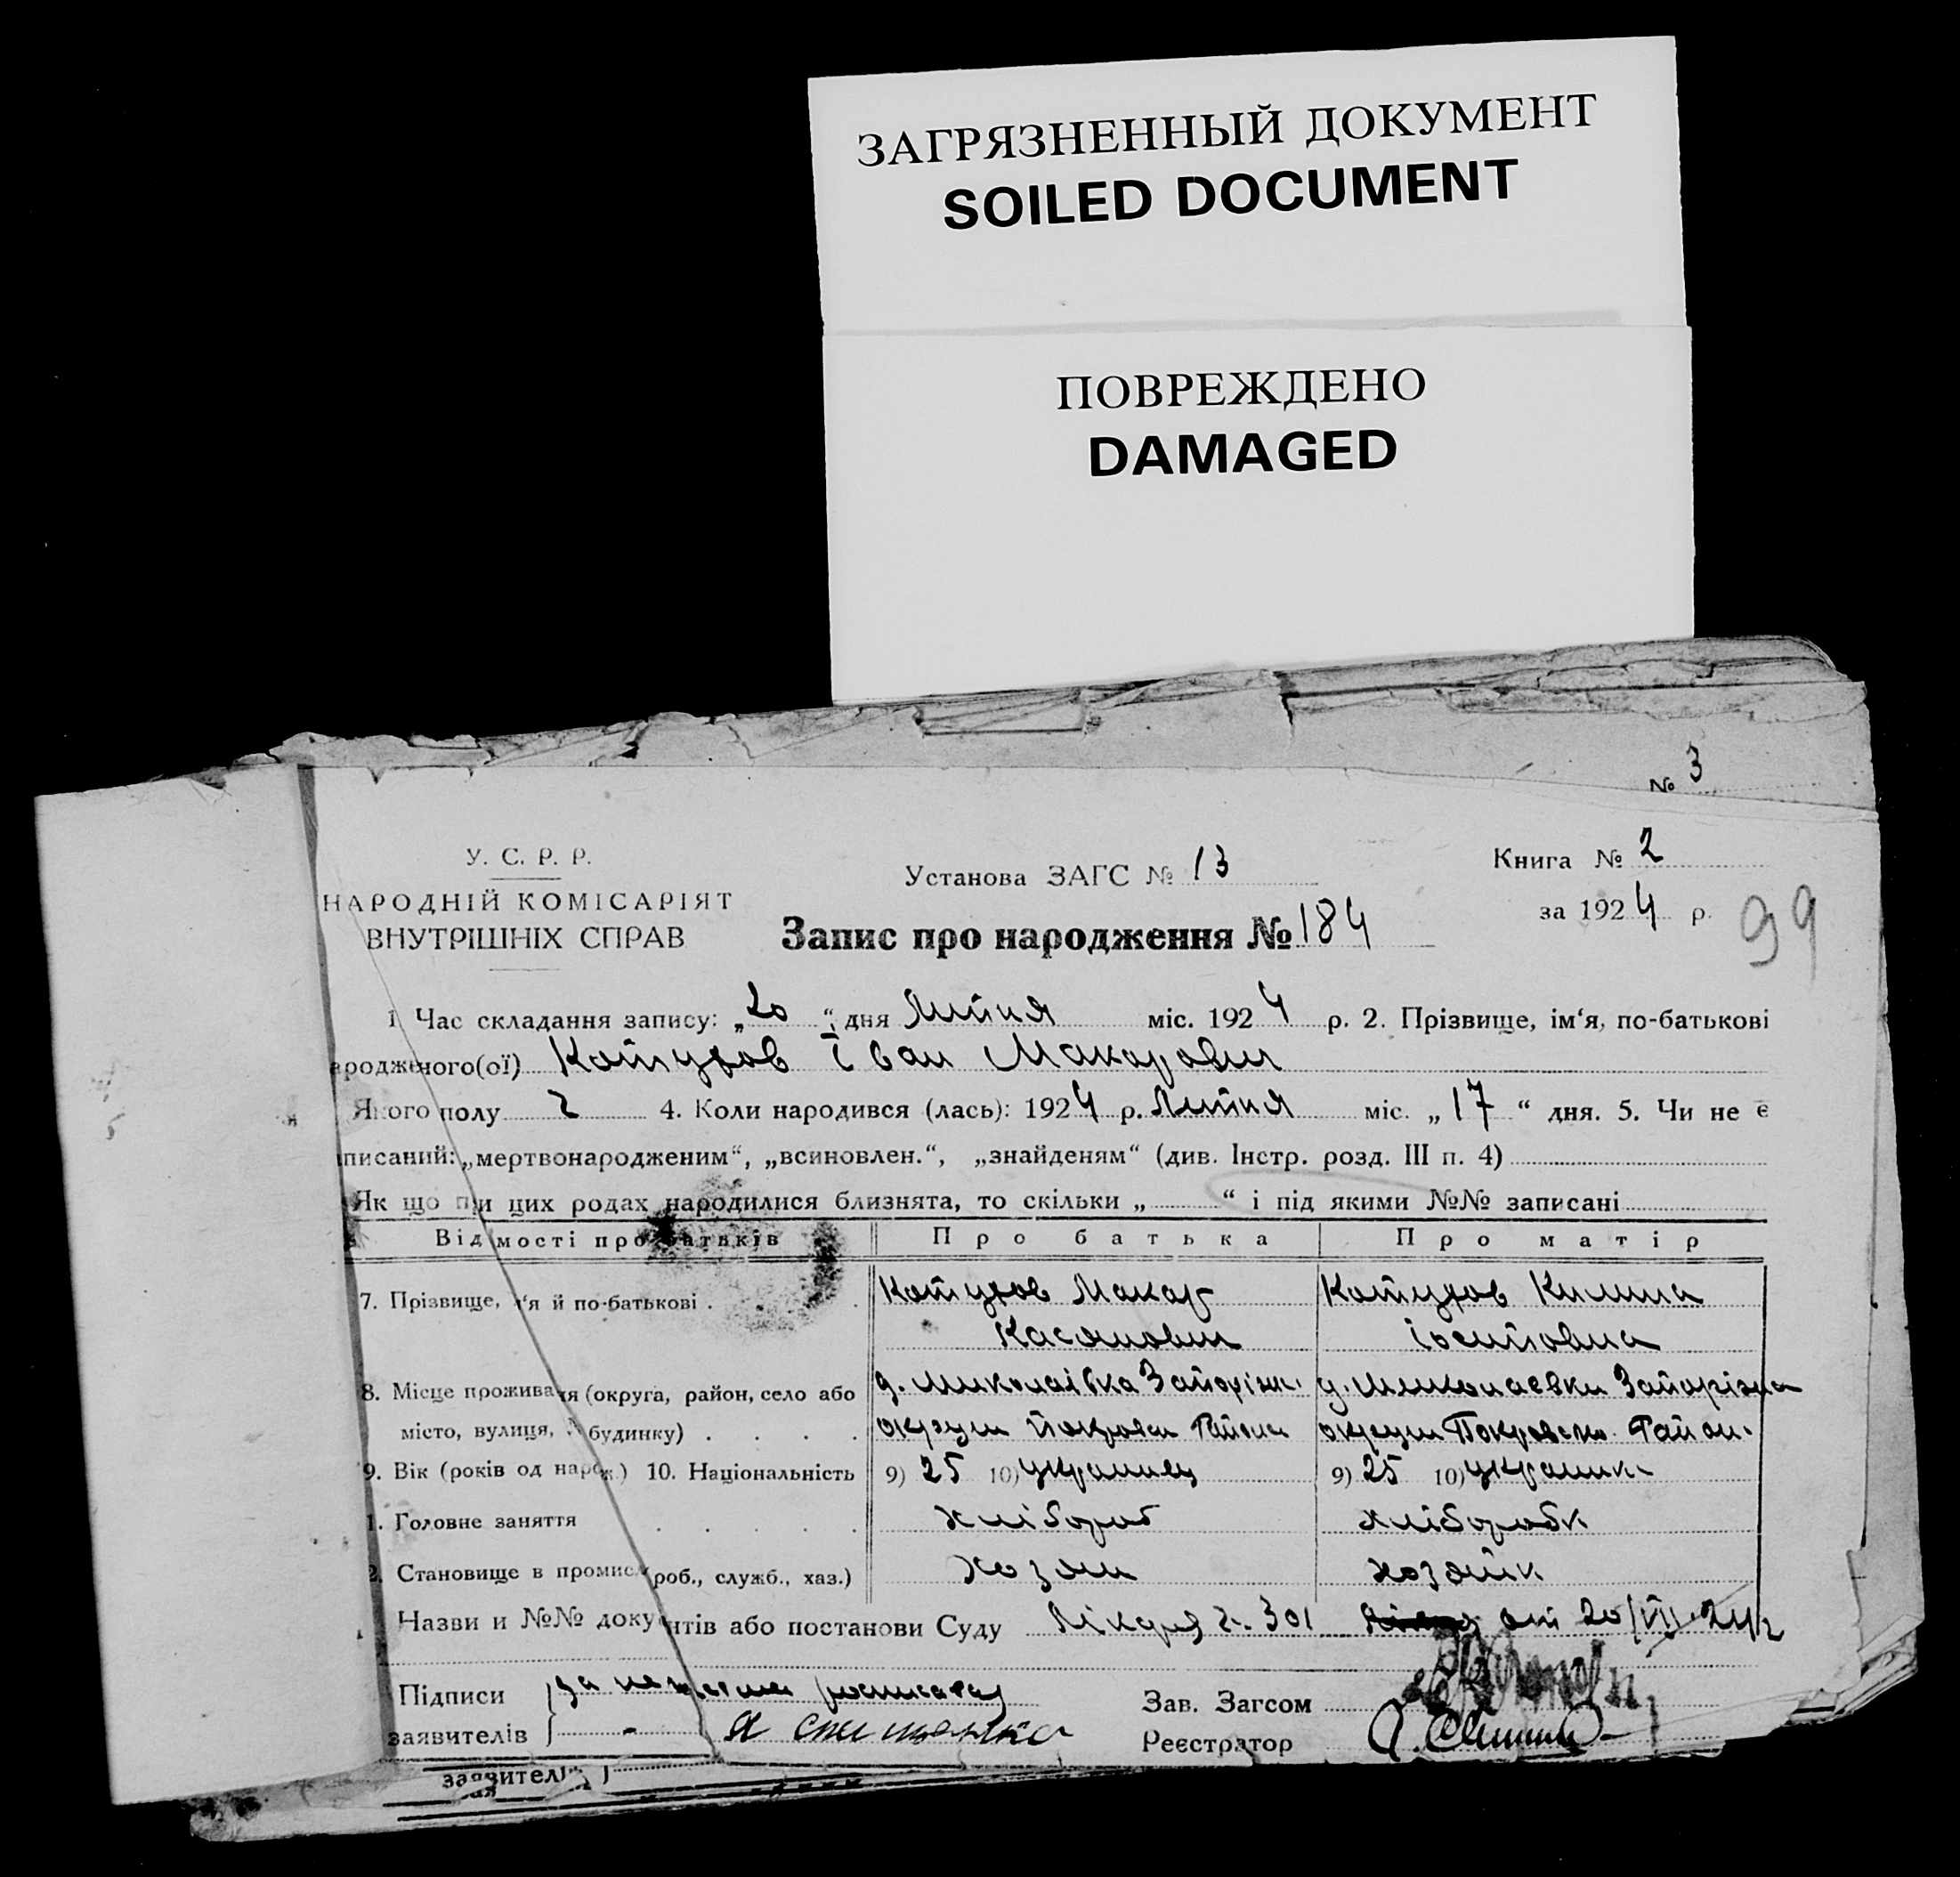 ЗАГРЯЗНЕННЫЙ ДОКУМЕНТ
SOILED DOCUMENT
ПОВРЕЖДЕНО
DAMAGED
№ 3
У. С. Р. Р.
НАРОДНІЙ КОМІСАРІЯТ
ВНУТРІШНІХ СПРАВ
Установа ЗАГС № 13
Книга № 2
за 1924 р.
99
Запис про народження № 184
1. Час складання запису: „20“ дня Липня міс. 1924 р. 2. Прізвище, ім‘я, по-батькові
ародженого(ої) Іван Макарович
Якого полу 4. Коли народився (лась): 1924 р. Липня міс. „17“ дня. 5. Чи не є
писаний: „мертвонародженим“, „всиновлен.“, „знайденям“ (див. Інстр. розд. III п. 4)
Як що при цих родах народилися близнята, то скільки „ “ і під якими №№ записані
Відмості про батьків Про батька Про матір
7. Прізвище, ‘я й по-батькові Макар Килина
Касянович Іосиповна
8. Місце проживаня (округа, район, село або д. Миколаівка Запоріж. д. Миколаевки
місто, вулиця, № будинку) округи Покровськ. Район.
9. Вік (років од нарож.) 10. Національність 9) 25 10) Украинец 9) 25 10) Украинк
1. Головне заняття хлібороб хліборобк
2. Становище в промисл роб., служб., хаз.) хозяин хозяйк
Назви и №№ документів або постанови Суду Лікаря 301 от 20/VII 24
Підписи за
заявителів
Зав. Загсом
Реєстратор
заявителів